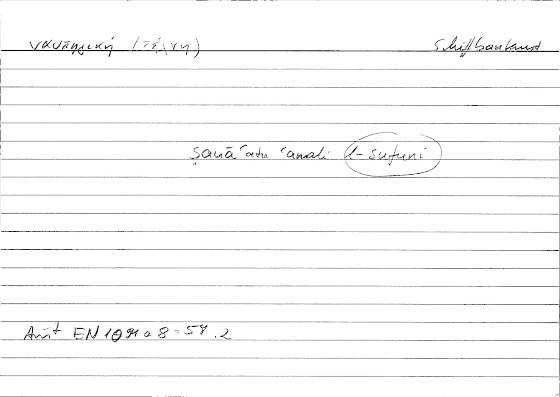 ναυπηγική (τέχνη) Schiffbaukunst
ṣanāʿatu ʿamali l-sufuni
Arist EN 1094a8 = 54.2